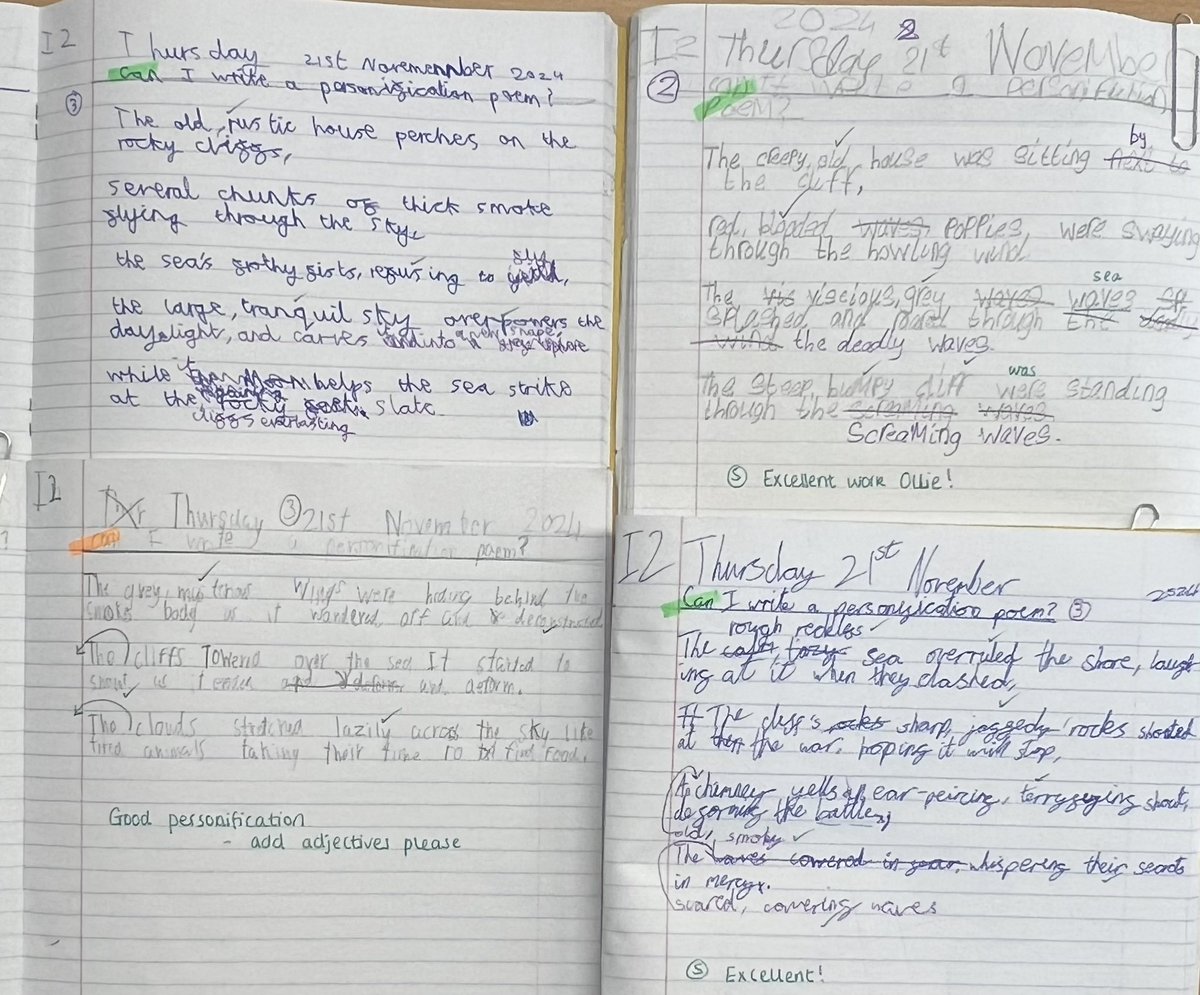 I2
Thursday 21st Novemennber 2024
Can I write a personification poem?
③
The old, rustic house perches on the
rocky cliffs,
several chunks of thick smoke
flying through the sky,
the sea's frothy fists, refusing to
fly,
the large, tranquil sky overpowers the
daylight, and carves it into a new shape
while helps the sea strike
at the slate
cliffs everlasting
I2
2024
Thursday 21st November
2
②
Can I write a personifiction
poem?
The creepy, old house was sitting next to
by
the cliff,
red, blooded waves POPPies, were swaying
through the howling wind
sea
The vis viscious, grey waves waves sp
splashed and roared through the
wind the deadly waves.
was
The steep, bumpy cliff were standing
through the screaming waves
Screaming waves.
Ⓢ Excellent work Ollie!
I2
Thursday ③ 21st November 2024
Can I write a personification poem?
The grey, wings were hiding behind the
smoke body as it wandered off and deconstructed
The cliffs Towerd over the sea It started to
shout as and deform.
The clouds stretched lazily across the sky like
tired animals taking their time to find food.
Good personification
- add adjectives please
I2
Thursday 21st November
2524
Can I write a personification poem? ③
rough reckless
The sea overruled the shore, laugh
ing at it when they clashed,
The cliff's rocks sharp, jagged rocks shouted
at the war, hoping it will stop,
A chimney yells an ear-peircing, terryfying shout,
deforming the battle,
old, smoky
The waves covered in fear, whispering their secrets
in mercy.
scared, cowering waves
Ⓢ Excellent!